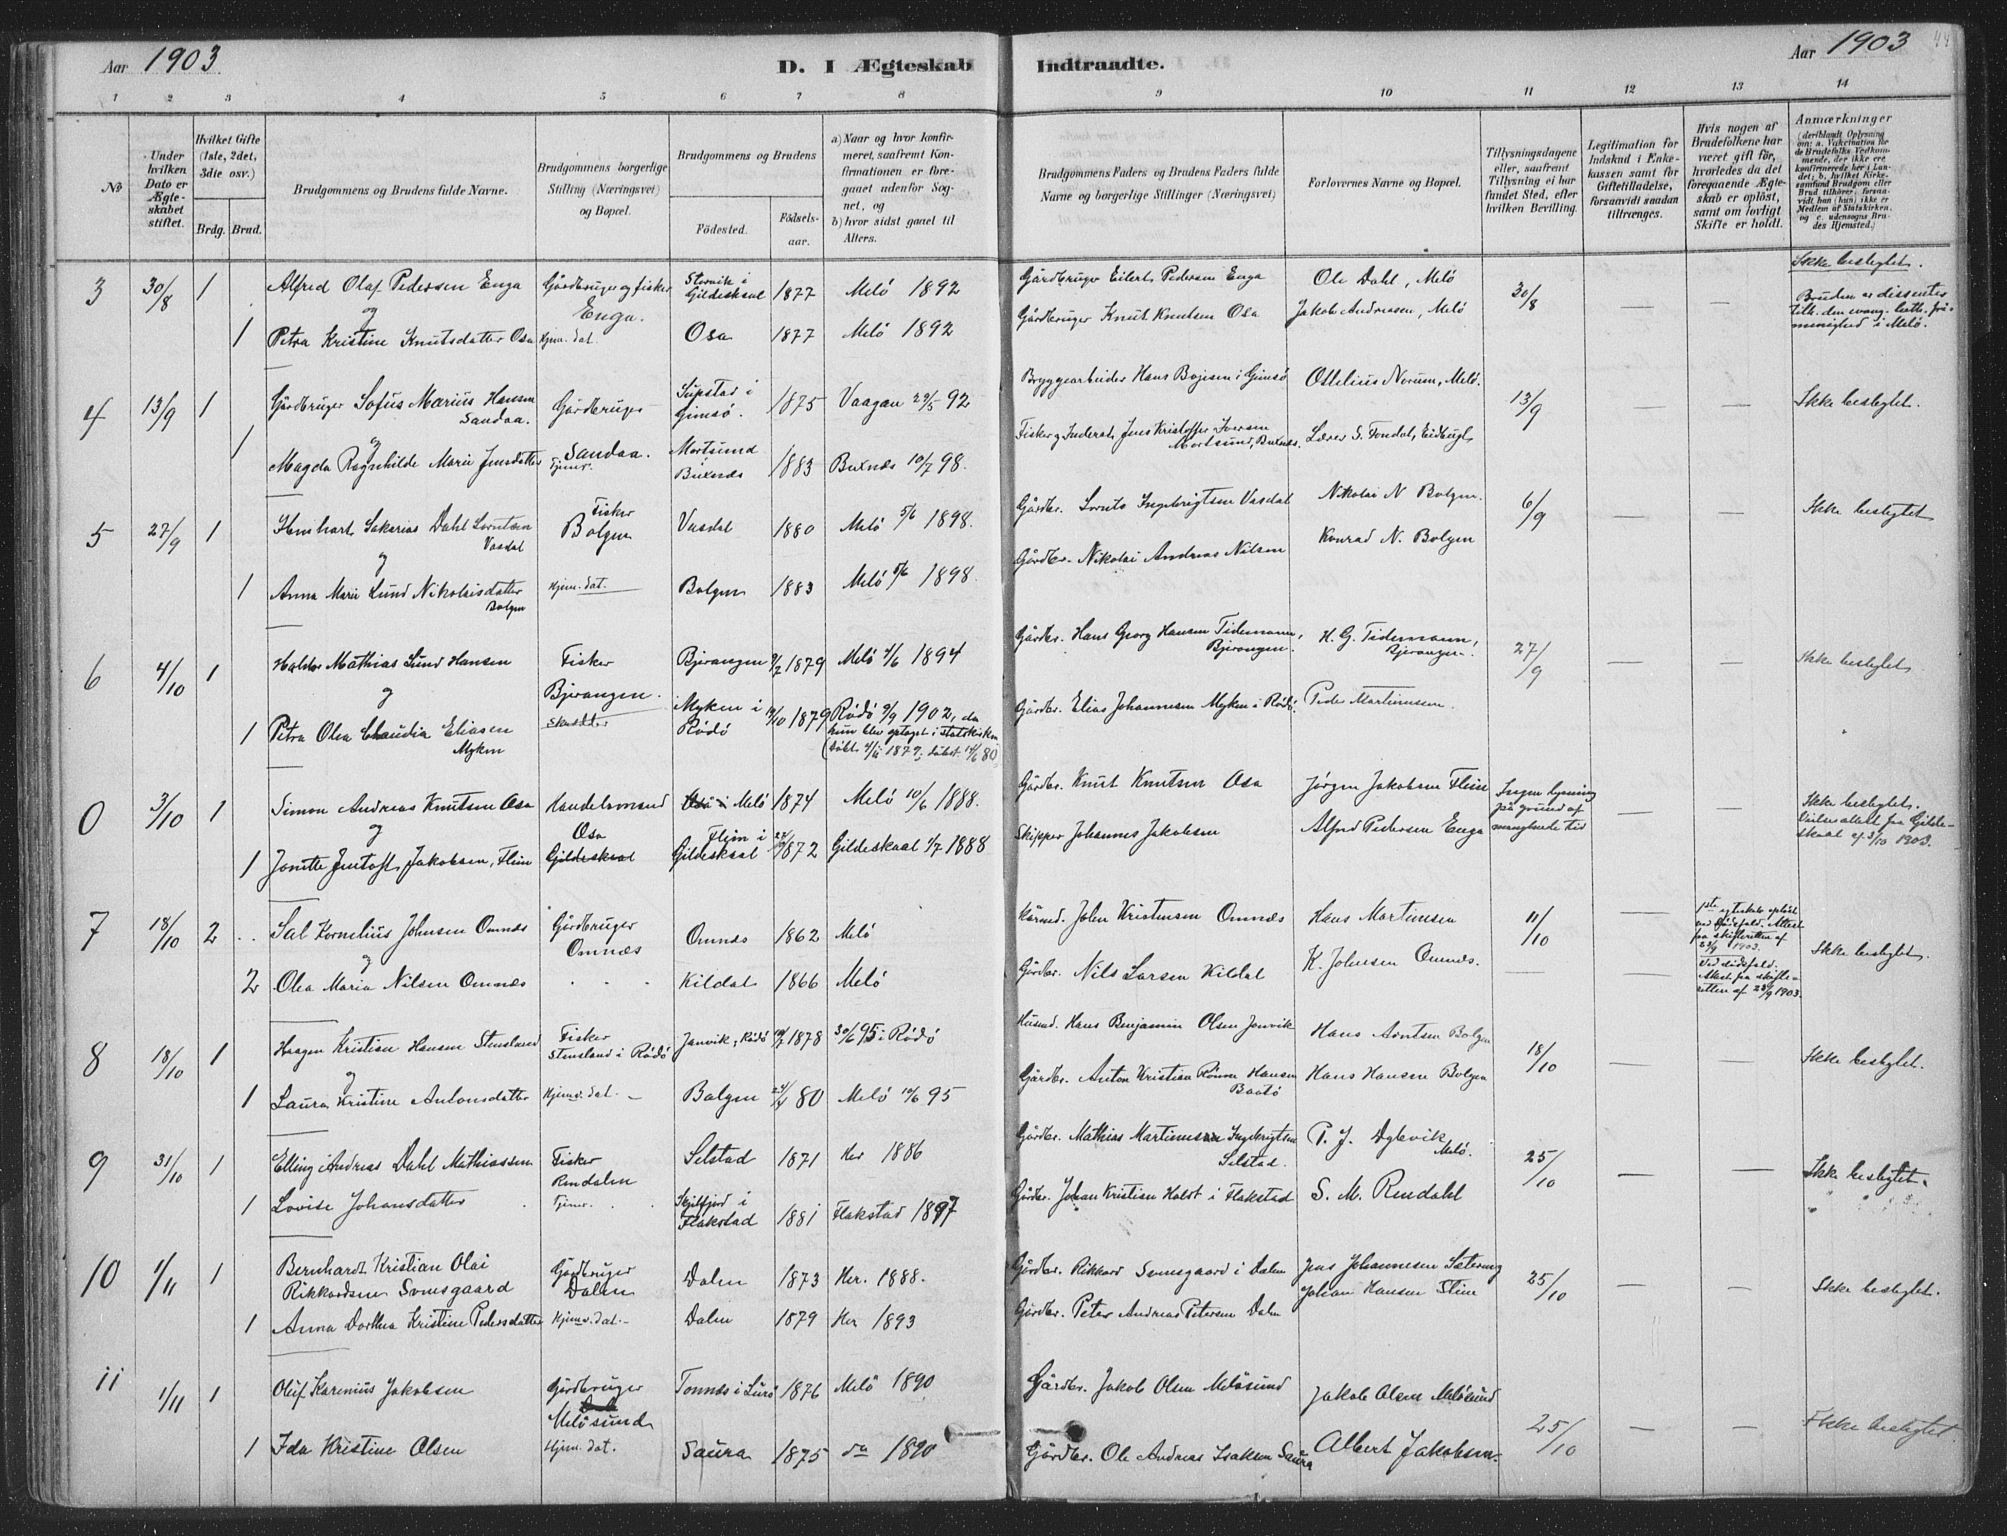 Aar 1903
D. I Ægteskab Indtraadte.
Aar 1903
1 2 3 4 5 6 7 8 9 10 11 12 13 14
No
Under hvilken Dato er Ægteskabet stiftet.
Hvilket Gifte (1ste, 2det, 3die osv.)
Brdg. Brud.
Brudgommens og Brudens fulde Navne.
Brudgommens borgerlige Stilling (Næringsvei) og Bopæl.
Brudgommens og Brudens
Födested. Födsels-aar.
a) Naar og hvor konfirmeret, saafremt Konfirmationen er foregaaet udenfor Sognet, og
b) hvor sidst gaaet til Alters.
Brudgommens Faders og Brudens Faders fulde Navne og borgerlige Stillinger (Næringsvei)
Forlovernes Navne og Bopæl.
Tillysningsdagene eller, saafremt Tillysning ei har fundet Sted, efter hvilken Bevilling.
Legitimation for Indskud i Enkekassen samt for Giftetilladelse, forsaavidt saadan tiltrænges.
Hvis nogen af Brudefolkene har været gift för, hvorledes da det foregaaende Ægteskab er oplöst, samt om lovligt Skifte er holdt.
Anmærkninger
3 30/8 1 Alfred Olaf Pedersen Enga Gårdbruger og fisker Enga. Storvik i Gildeskaal 1877 Melö 1892 Gårdbruger Eilert Pedersen Enga Ole Dahl, Melö 30/8 — — Ikke beslegtet.
og
1 Petra Kristine Knutsdatter Osa Hjem. dat. Osa 1877 Melö 1892 Gårdbruger Knut Knutsen Osa Jakob Andreasen, Melö Bruden er dissenter tilh. den evang. luth. frimenighed i Melö.
4 13/9 1 Gårdbruger Sofus Marius Hansen Sandaa. Gårdbruger Sandaa. Supstad i Gimsö. 1875 Vaagan 29/5 92 Bryggearbeider Hans Bojesen i Gimsö Ottelius Norum, Melö. 13/9 — — Ikke beslegtet.
og
1 Magda Ragnhilde Marie Jensdatter Tjener. Mortsund Buxnæs 1883 Buxnæs 10/7 98. Jens Kristoffer Iversen Mortsund, Buxnæs. Lærer S. Fondal,
5 27/9 1 Sakarias Dahl Lorntsen Vasdal Fisker Bolgen Vasdal 1880 Melö 5/6 1898. Gårdbr. Lornts Ingebrigtsen Vasdal Nikolai N Bolgen. 6/9 — — Ikke beslegtet
og
1 Anna Marie Lund Nikolaisdatter Bolgen Hjem. dat. Bolgen 1883 Melö 5/6 1898. Gårdbr. Nikolai Andreas Nilsen Konrad N. Bolgen
6 4/10 1 Haldor Mathias Lund Hansen Fisker Bjerangen. Bjerangen 1879 Melö 4/6 1894 Gårdbr. Hans Georg Hansen Tidemann, Bjerangen. H. G. Tidemann, Bjerangen. 27/9 — — Ikke beslegtet.
og
1 Petra Olea Claudia Eliasen Myken Myken i Rödö 1879 Rödö 9/9 1902, da hun blev optaget i statskirken Gårdbr. Elias Johannesen Myken i Rödö. Peder Martinussen.
0 3/10 1 Simon Andreas Knutsen Osa Handelsmand Osa Melö 1874 Melö 10/6 1888. Gårdbr. Knut Knutsen Osa Jørgen Jakobsen Ingen lysning på grund af manglende tid — — Ikke beslegtet.
og
1 Jakobsen, Gildeskaal Gildeskaal 1872 Gildeskaal 1/7 1888 Skipper Johannes Jakobsen Alfred Pedersen Enga attest fra Gildeskaal af 3/10 1903.
7 18/10 2 Sal Kornelius Johnsen Omnæs Gårdbruger Omnæs Omnæs 1862 Melö John Kristensen Omnæs Hans Martinsen 11/10 — 1ste egteskab oplöst ved Dödsfald. Attest fra skifteretten af 28/9 1903. Ikke beslegtet.
og
2 Olea Maria Nilsen Omnæs Kildal 1866 Melö Gårdbr. Nils Larsen Kildal K. Johnsen Omnæs. — — Ved dödsfald. Attest fra skifteretten af 28/9 1903.
8 18/10 1 Haagen Kristian Hansen Stensland Fisker Stensland i Rödö Janvik, Rödö 1878 30/6 95 i Rödö Husmd. Hans Benjamin Olsen Janvik Hans Arntsen Bolgen 18/10 — — Ikke beslegtet.
og
1 Laura Kristine Antonsdatter Hjemv. dat. Bolgen 80 Melö 95 Gårdbr. Anton Kristian Rönne Hansen Hans Hansen Bolgen
9 31/10 1 Elling Andreas Dahl Mathiassen Fisker Rendalen Selstad 1871 Her 1886 Gårdbr. Mathias Martinussen Ingebrigtsen Selstad. P. J. Melö. 25/10 — — Ikke beslegtet.
1 Lovise Johansdatter Tjener. Skjelfjord i Flakstad 1881 Flakstad 1897 Gårdbr. Johan Kristian Holst i Flakstad S. M. Rendahl
10 1/11 1 Bernhardt Kristian Olai Rikkardsen Sonesgaard Gårdbruger Dalen Dalen 1873 Her. 1888. Gårdbr. Rikkard Sonesgaard i Dalen Jens Johannesen 25/10 — — Ikke beslegtet.
1 Anna Dorthea Kristine Pedersdatter Hjemv. dat. Dalen 1879 Her 1893 Gårdbr. Peter Andreas Petersen Dalen Johan Hansen
11 1/11 1 Oluf Karenius Jakobsen Gårdbruger Melösund Tonnes i Lurö 1876 Melö 1890 Gårdbr. Jakob Olsen Melösund Jakob Olsen Melösund 25/10 — — Ikke beslegtet.
1 Ida Kristine Olsen Hjem. dat. Saura 1875 da 1890 Gårdbr. Ole Andreas Isaksen Saura Albert Jakobsen.